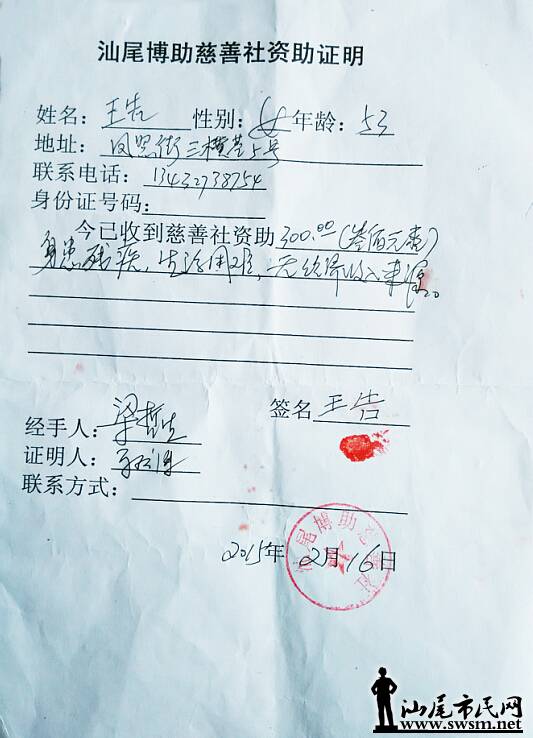 汕尾博助慈善社资助证明
姓名：王告 性别：女 年龄：53
地址：凤照街三横巷5号
联系电话：13432738754
身份证号码：
今已收到慈善社资助300.00(叁佰元壹)
身患残疾，生活困难，无经济收入来源。
签名 王告
经手人：梁哲生
证明人：
联系方式：
汕尾博助慈善社
2015年2月16日
汕尾市民网
www.swsm.net